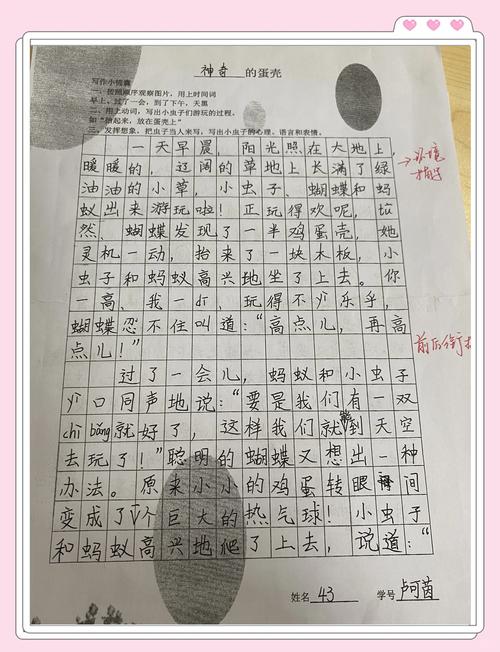 神奇 的蛋壳
写作小锦囊
一、按照顺序观察图片，用上时间词
早上，过了一会，到了下午，天黑
二、用上动词，写出小虫子们游玩的过程。
如“抬起来，放在蛋壳上”
三、发挥想象，把虫子当人来写，写出小虫子的心理、语言和表情。
一天早晨，阳光照在大地上，
暖暖的，辽阔的草地上长满了绿
油油的小草，小虫子、蝴蝶和蚂
蚁出来游玩啦！正玩得欢呢，
然、蝴蝶发现了一半鸡蛋壳，她
灵机一动，抬来了一块木板，小
虫子和蚂蚁高兴地坐了上去。你
一高、我一dī，玩得不yì乐乎，
蝴蝶忍不住叫道：“高点儿，再高
点儿！”
过了一会儿，蚂蚁和小虫子
yì口同声地说：“要是我们有一双
chì bǎng就好了，这样我们就到天空
去玩了！”聪明的蝴蝶又想出一种
办法。原来小小的鸡蛋转眼间
变成了个巨大的热气球！小虫子
和蚂蚁高兴地爬了上去，说道：“
环境
描写
前后衔接
姓名 43 学号 卢可茵